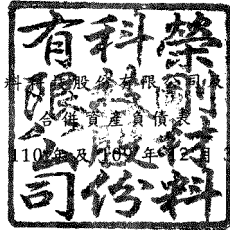 榮剛材料
科技股份
有限公司
股份有限公司
合併資產負債表
110年及109年12月3